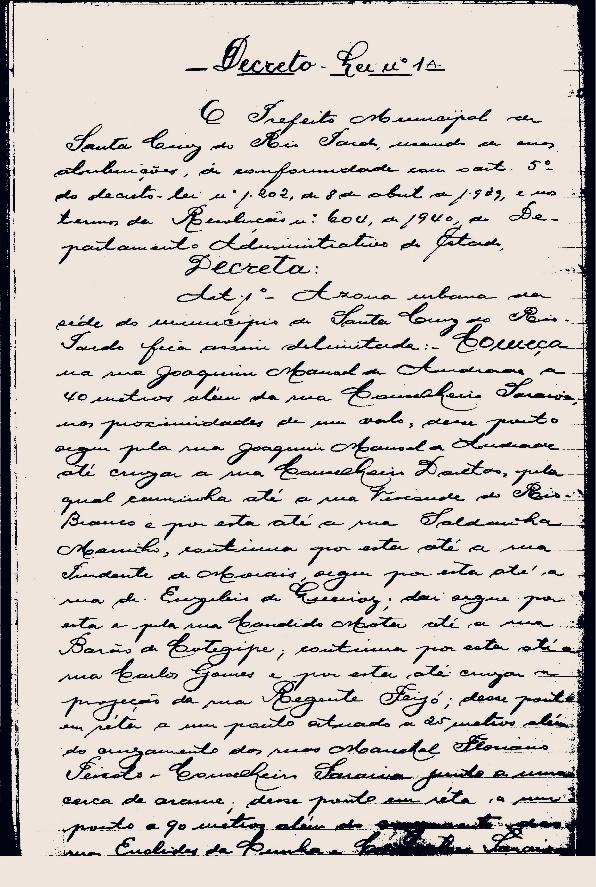 Decreto-Lei nº 10
O Prefeito Municipal de
Santa Cruz do Rio Pardo, usando de suas
atribuições, de conformidade com o art. 5º
do decreto-lei nº 1.202, de 8 de abril de 1.939, e nos
termos da Resolução nº 604, de 1940, do De-
partamento Administrativo do Estado,
Decreta:
Art. 1º - A zona urbana da
séde do municipio de Santa Cruz do Rio-
Pardo fica assim delimitada: - Começa
na rua Joaquim Manoel de Andrade a
40 metros além da rua Conselheiro Saraiva,
nas proximidades de um valo, desse ponto
segue pela rua Joaquim Manoel de Andrade
até cruzar a rua Conselheiro Dantas, pela
qual caminha até a rua Visconde do Rio-
Branco e por esta até a rua Saldanha
Marinho, continua por esta até a rua
Prudente de Morais, segue por esta até a
rua dr. ; dai segue por
esta e pela rua Candido Mota até a rua
Barão de Cotegipe; continua por esta até a
rua Carlos Gomes e por esta até cruzar a
projeção da rua Regente Feijó; desse ponto
em réta a um ponto situado a 25 metros além
do cruzamento das ruas Marechal Floriano
Peixoto e Conselheiro Saraiva junto a uma
cerca de arame, desse ponto em réta a um
ponto a 90 metros além do cruzamento das
ruas Euclides da Cunha e Conselheiro Saraiva